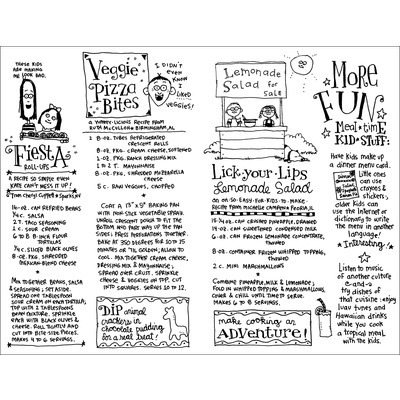 THESE KIDS
ARE MAKING
ME LOOK BAD.
FIESTA
ROLL-UPS
A RECIPE SO SIMPLE EVEN
KATE CAN'T MESS IT UP!
from Cheryl Cuffett • Sparks, NV
16-OZ. CAN REFRIED BEANS
1/4 C. SALSA
2 T. TACO SEASONING
2 C. SOUR CREAM
6 TO 8 8-INCH FLOUR
TORTILLAS
SLICED BLACK OLIVES
8-OZ. PKG. SHREDDED
MEXICAN-BLEND CHEESE
MIX TOGETHER BEANS, SALSA
& SEASONING; SET ASIDE.
SPREAD ONE TABLESPOON
SOUR CREAM ON EACH TORTILLA;
TOP WITH 2 TABLESPOONS
BEAN MIXTURE. SPRINKLE
EACH WITH BLACK OLIVES &
CHEESE. ROLL TIGHTLY AND
CUT INTO BITE-SIZE PIECES.
MAKES 4 TO 6 SERVINGS.
Veggie
Pizza
Bites
I DIDN'T
EVEN
KNOW
I LIKED
VEGGIES!
A YUMMY-LICIOUS RECIPE FROM
RUTH McCULLOH • BIRMINGHAM, AL
2 8-OZ. TUBES REFRIGERATED
CRESCENT ROLLS
8-OZ. PKG. CREAM CHEESE, SOFTENED
1-OZ. PKG. RANCH DRESSING MIX
1 TO 2 T. MAYONNAISE
8-OZ. PKG. SHREDDED MOZZARELLA
CHEESE
5 C. RAW VEGGIES, CHOPPED
COAT A 13"x9" BAKING PAN
WITH NON-STICK VEGETABLE SPRAY.
UNROLL CRESCENT DOUGH TO FIT THE
BOTTOM AND PART WAY UP THE
SIDES; PRESS PERFORATIONS TOGETHER.
BAKE AT 350 DEGREES FOR 10 TO 15
MINUTES OR 'TIL GOLDEN; ALLOW TO
COOL. MIX TOGETHER CREAM CHEESE,
DRESSING MIX & MAYONNAISE;
SPREAD OVER CRUST. SPRINKLE
CHEESE & VEGGIES ON TOP. CUT
INTO SQUARES. SERVES 10 TO 12.
DIP animal
crackers in
chocolate pudding
for a real treat!
Lemonade
Salad for
SALE
Lick-your-Lips
Lemonade Salad
AN OH-SO-EASY-FOR-KIDS-TO-MAKE
RECIPE FROM MICHELLE CAMPEN • PEORIA, IL
20-OZ. CAN CRUSHED PINEAPPLE, DRAINED
14-OZ. CAN SWEETENED CONDENSED MILK
6-OZ. CAN FROZEN LEMONADE CONCENTRATE,
THAWED
8-OZ. CONTAINER FROZEN WHIPPED TOPPING,
THAWED
2 C. MINI MARSHMALLOWS
COMBINE PINEAPPLE, MILK & LEMONADE;
FOLD IN WHIPPED TOPPING & MARSHMALLOWS.
COVER & CHILL UNTIL TIME TO SERVE.
MAKES 6 TO 8 SERVINGS.
make cooking an
ADVENTURE!
MORE
FUN
MEAL•TIME
KID•STUFF:
Have kids make up
a dinner menu card.
Little ones
can use
crayons &
stickers;
older kids can
use the Internet or
dictionary to write
the menu in another
language!
Interesting!
Listen to music
of another culture
a-n-d
try dishes of
that cuisine: enjoy
luau tunes and
Hawaiian drinks
while you cook
a tropical meal
with the kids.